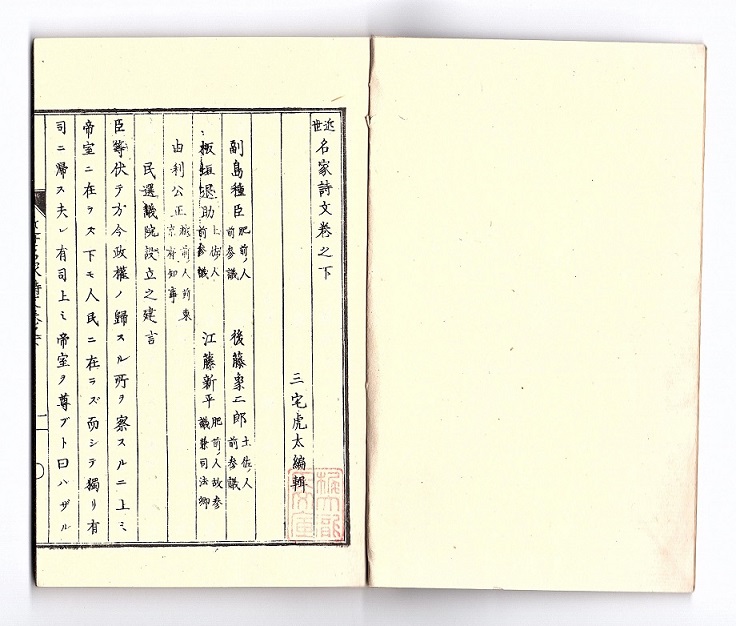 近世名家詩文卷之下
三宅虎太編輯
副島種臣 肥前ノ人 前參議 後藤象二郎 土佐ノ人 前參議
板垣退助 土佐ノ人 前參議 江藤新平 肥前ノ人故參議兼司法卿
由利公正 越前ノ人前東京府知事
民選議院設立之建言
臣等伏テ方今政權ノ歸スル所ヲ察スルニ上ミ
帝室ニ在ラス下モ人民ニ在ラズ而シテ獨リ有
司ニ歸ス夫レ有司上ミ帝室ヲ尊ブト曰ハザル